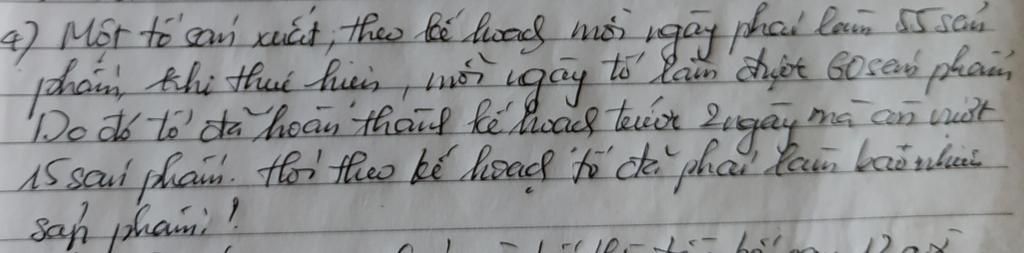 4) Một tổ sản xuất, theo kế hoạch mỗi ngày phải làm 55 sản
phẩm, khi thực hiện, mỗi ngày tổ làm được 60 sản phẩm
Do đó tổ đã hoàn thành kế hoạch trước 2 ngày mà còn vượt
15 sản phẩm. Hỏi theo kế hoạch tổ đã phải làm bao nhiêu
sản phẩm?